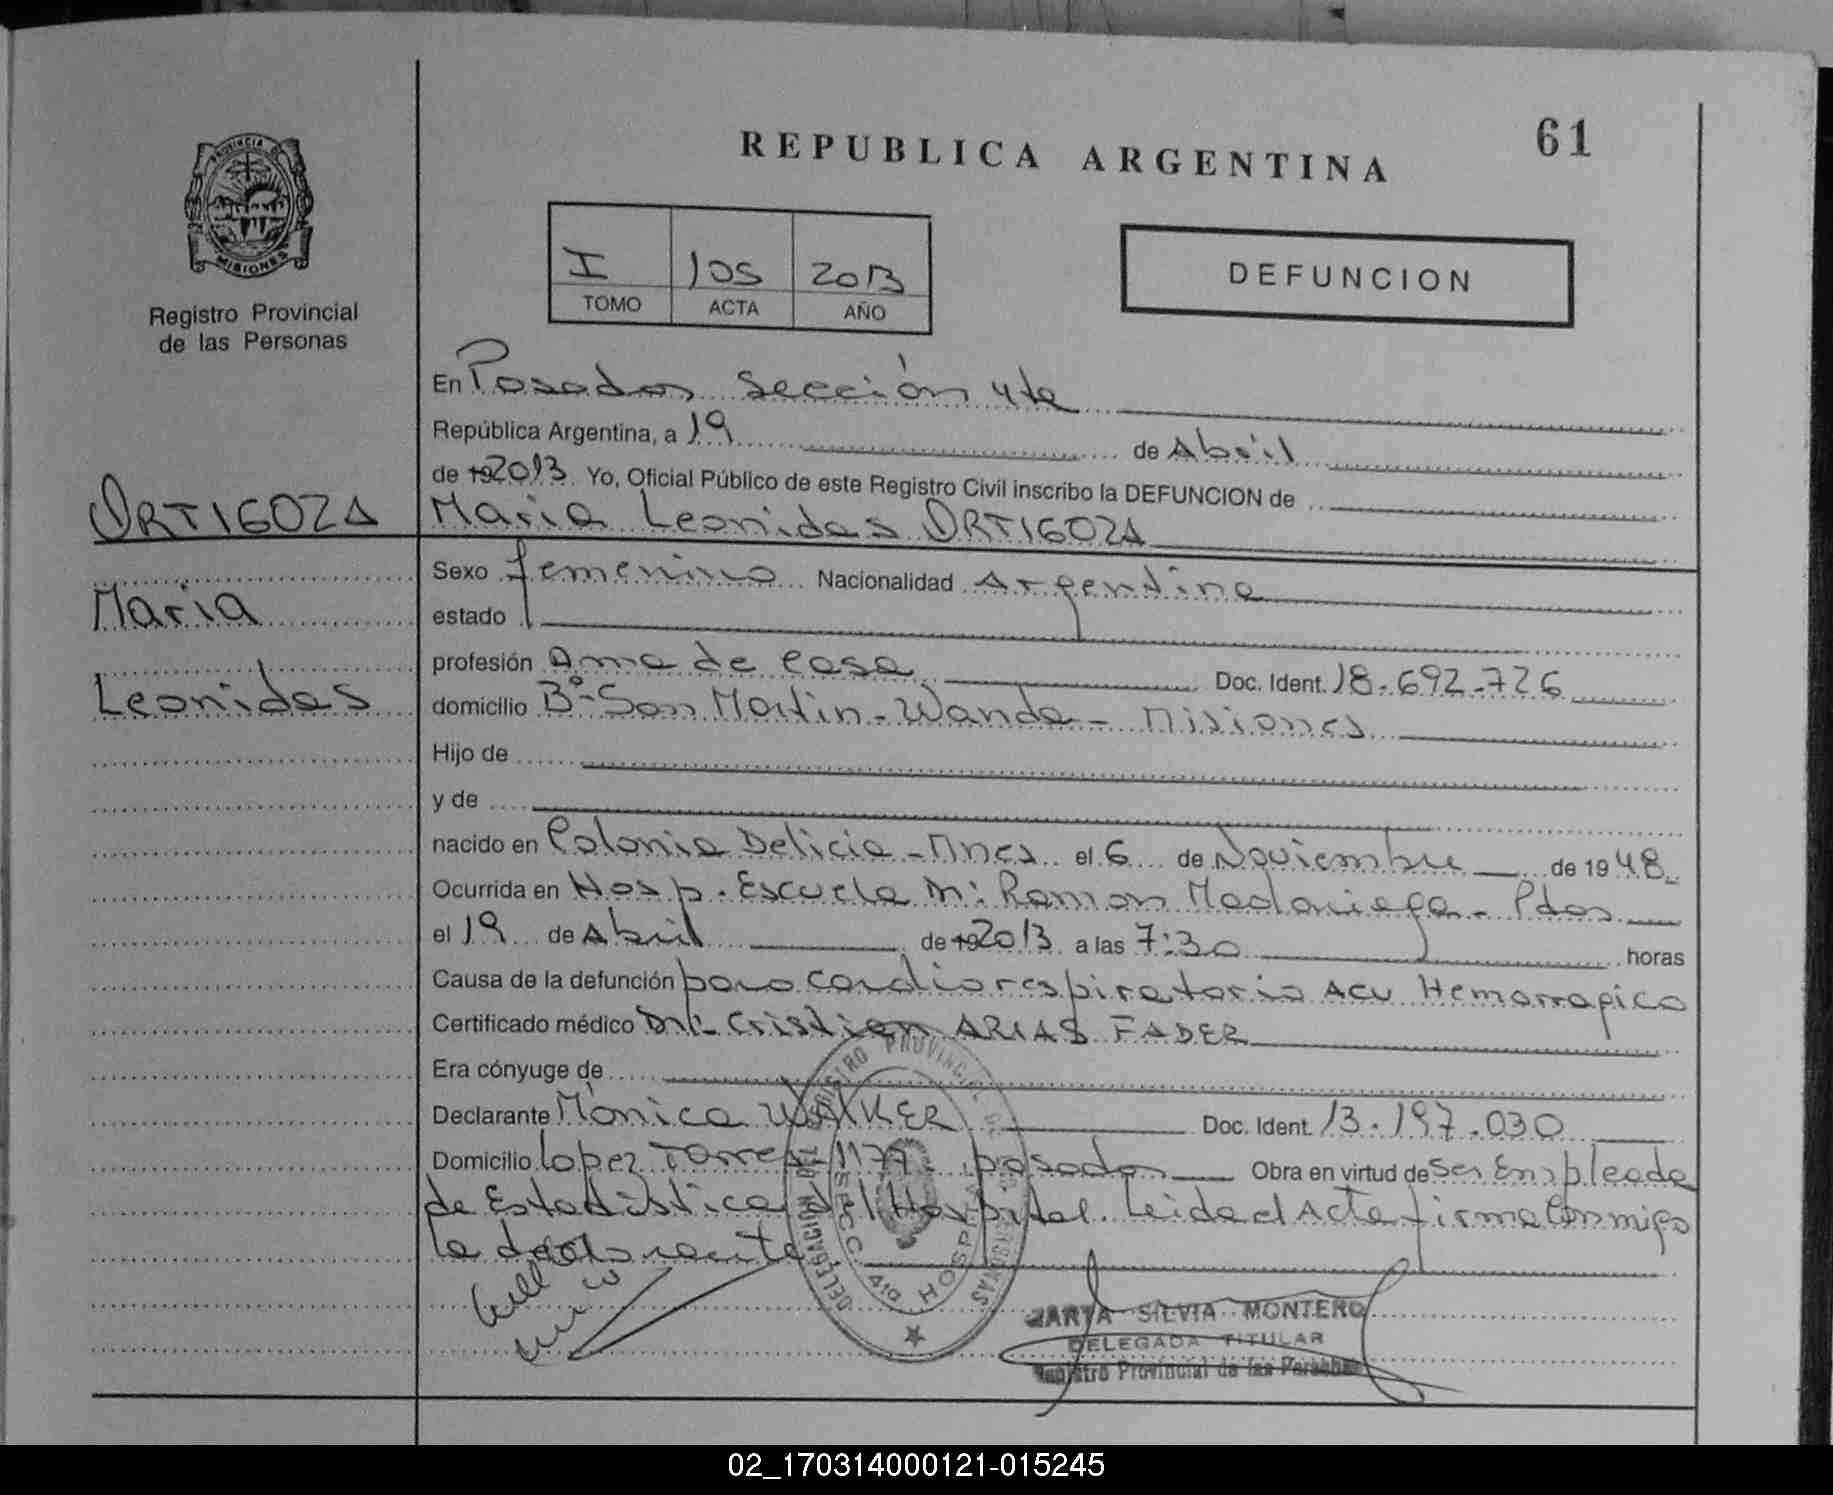 REPUBLICA ARGENTINA
61
PROVINCIA DE
MISIONES
Registro Provincial
de las Personas
I 105 2013
TOMO ACTA AÑO
DEFUNCION
En Posadas Sección 4ta
República Argentina, a 19 de Abril
de 192013 Yo, Oficial Público de este Registro Civil inscribo la DEFUNCION de
ORTIGOZA
Maria Leonidas ORTIGOZA
Maria
Leonidas
Sexo femenino Nacionalidad Argentina
estado
profesión Ama de Casa Doc. Ident. 18.692.726
domicilio Bº San Martin - Wanda - Misiones
Hijo de
y de
nacido en Colonia Delicia - Mnes el 6 de Noviembre de 1948
Ocurrida en Hosp. Escuela Dr: Ramon Madariaga - Pdas
el 19 de Abril de 192013 a las 7:30 horas
Causa de la defunción paro cardiorespiratorio ACV Hemorragico
Certificado médico Dr: Cristian ARIAS FADER
Era cónyuge de
Declarante Mónica WALKER Doc. Ident. 13.197.030
Domicilio Lopez Torres 1177 posadas Obra en virtud de Ser Empleada
de Estadistica del Hospital. Leida el Acta firma Conmigo
la declarante
REGISTRO PROVINCIAL DE LAS PERSONAS
DELEGACION
SECC
HOSP
MARTA SILVIA MONTERO
DELEGADA TITULAR
Registro Provincial de las Personas
02_170314000121-015245